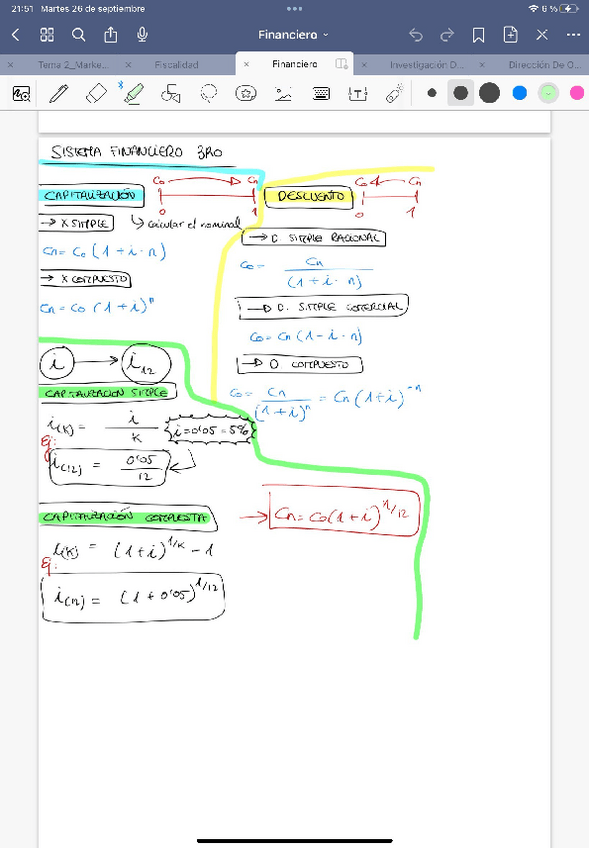 21:51 Martes 26 de septiembre
6 %
Financiero
Tema 2_Marke...
Fiscalidad
Financiero
Investigación D...
Dirección De O...
SISTEMA FINANCIERO 3RO
CAPITALIZACIÓN
Co Cn
0 1
↳ calcular el nominal
→ X SIMPLE
Cn = Co (1 + i · n)
→ X COMPUESTO
Cn = Co (1 + i)^n
DESCUENTO
Co Cn
0 1
→ D. SIMPLE RACIONAL
Co = Cn / (1 + i · n)
→ D. SIMPLE COMERCIAL
Co = Cn (1 - i · n)
→ D COMPUESTO
Co = Cn / (1 + i)^n = Cn (1 + i)^-n
i → i12
CAPITALIZACIÓN SIMPLE
i(k) = i / k
i = 0'05 = 5%
Ej:
i(12) = 0'05 / 12
CAPITALIZACIÓN COMPUESTA
i(k) = (1 + i)^1/k - 1
Ej:
i(12) = (1 + 0'05)^1/12
→ Cn = Co (1 + i)^1/12